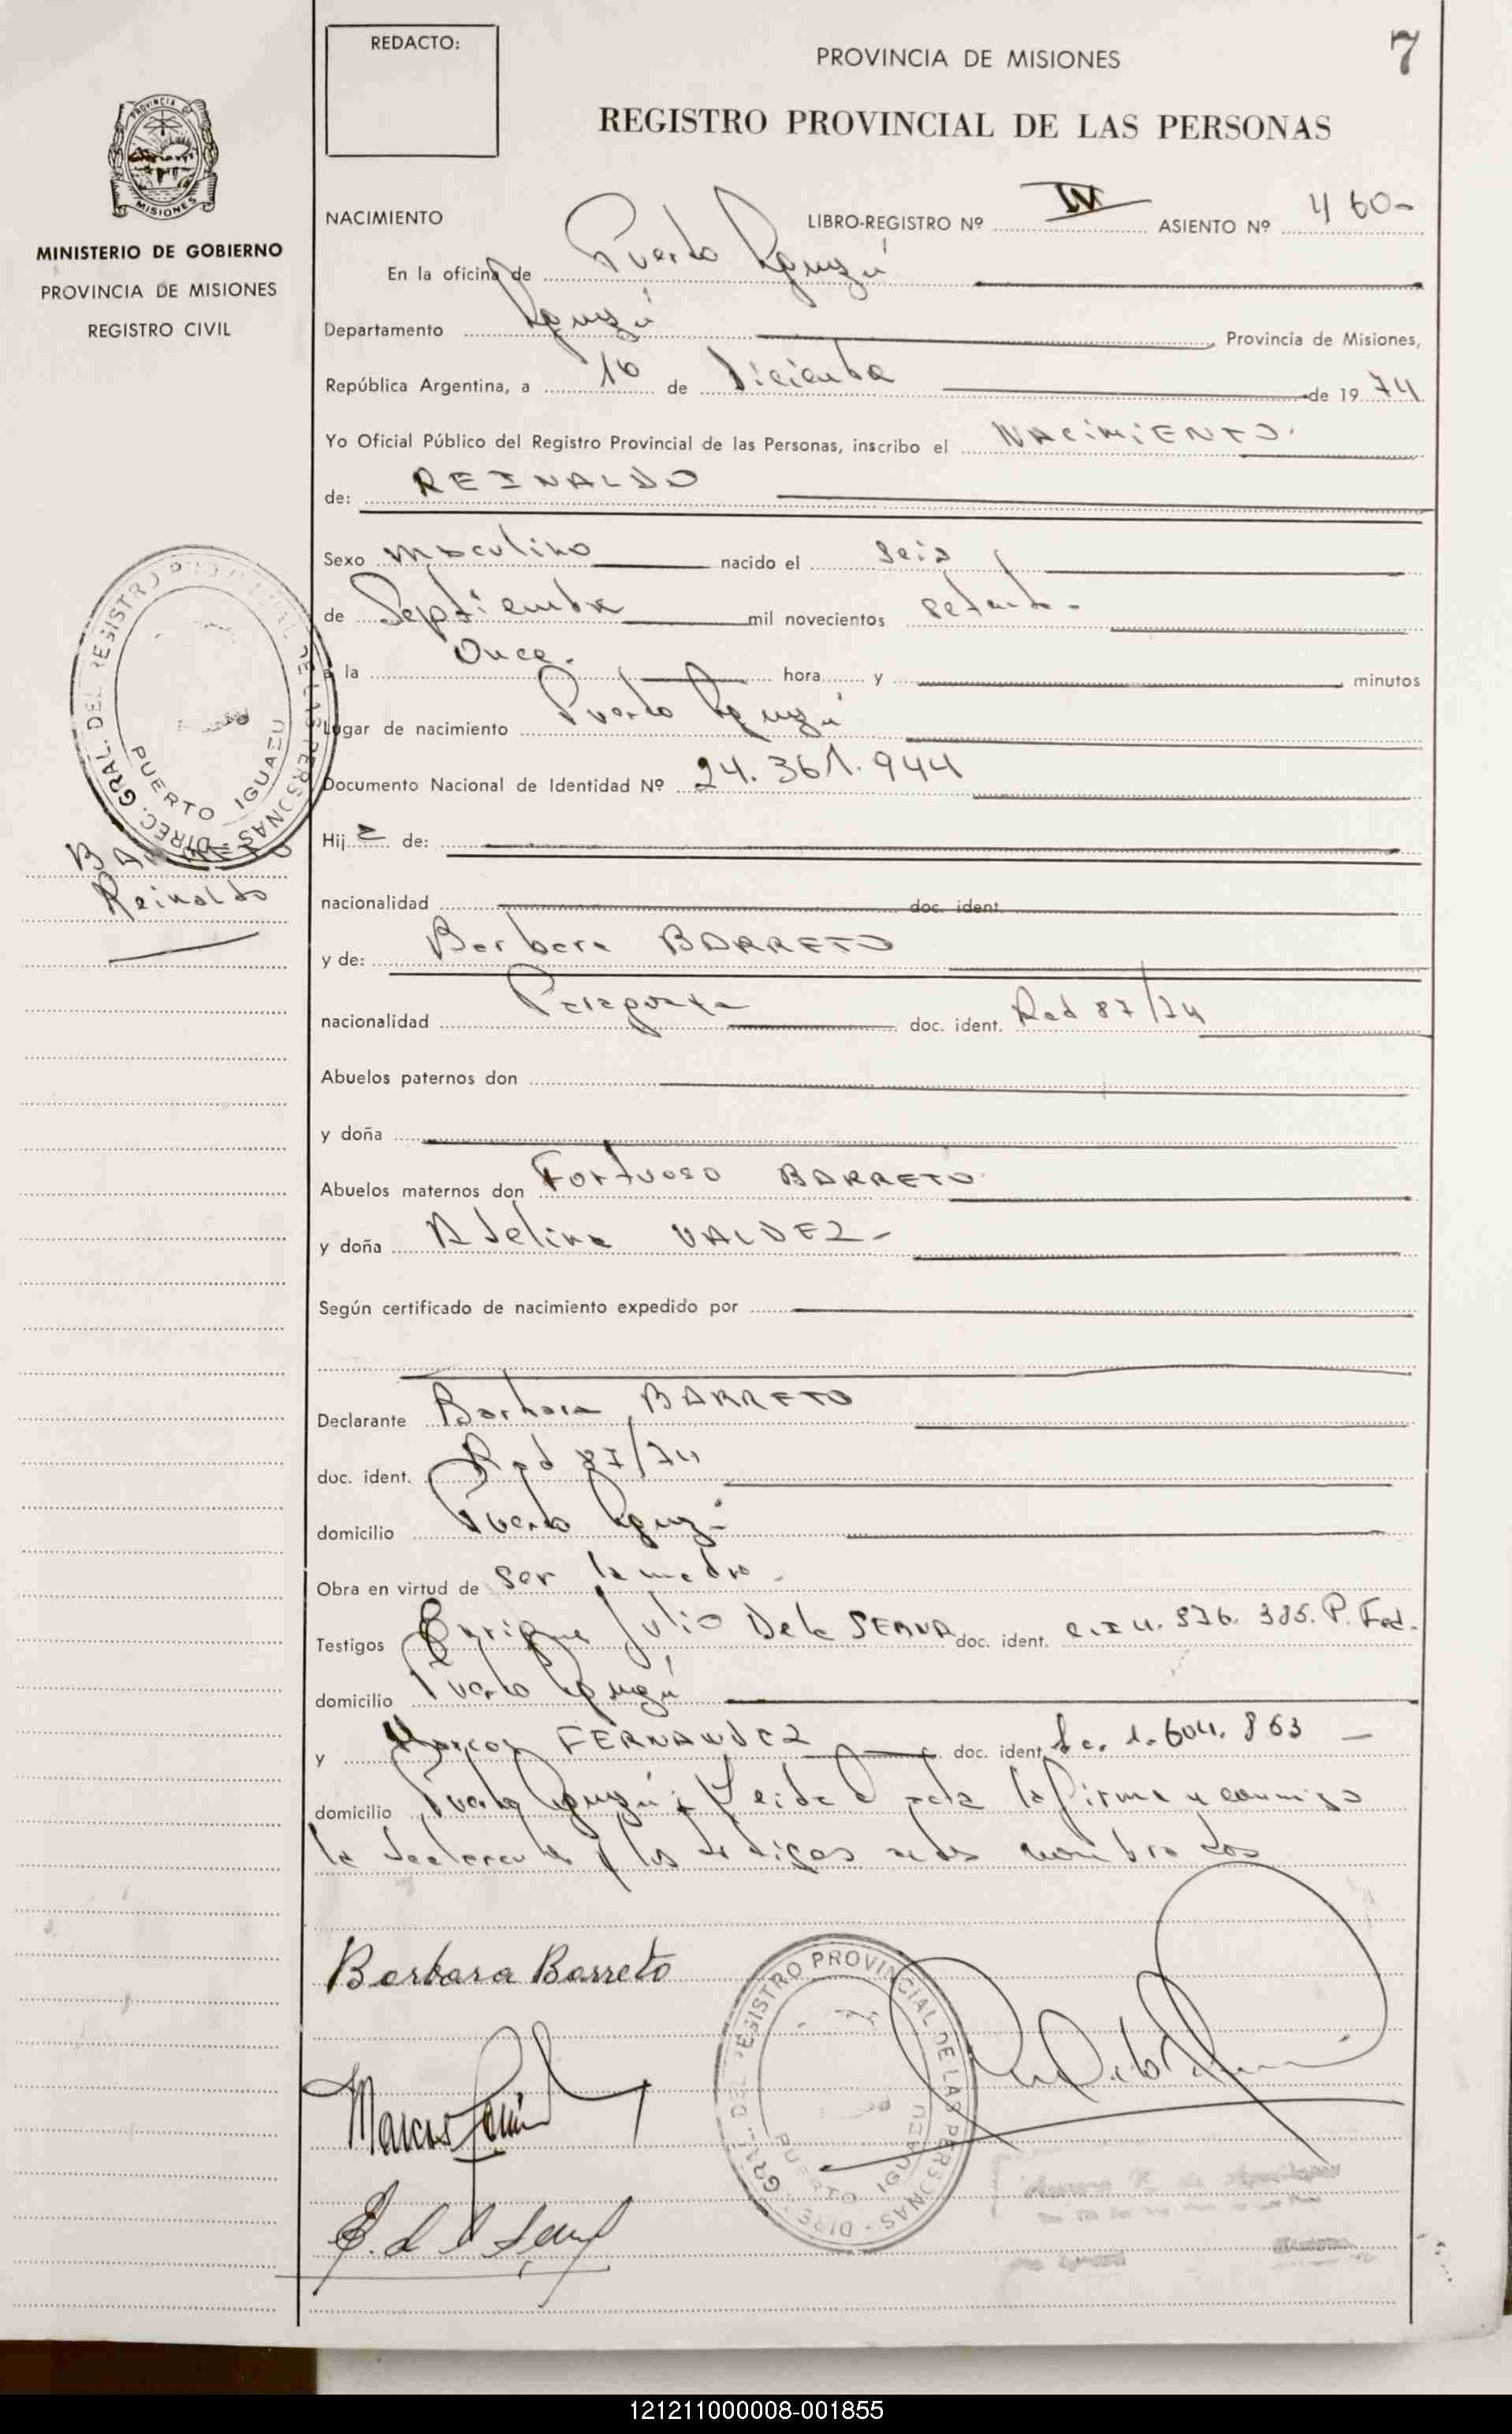 REDACTO:
PROVINCIA DE MISIONES
7
REGISTRO PROVINCIAL DE LAS PERSONAS
PROVINCIA DE
MISIONES
MINISTERIO DE GOBIERNO
PROVINCIA DE MISIONES
REGISTRO CIVIL
NACIMIENTO LIBRO-REGISTRO Nº IV ASIENTO Nº 460-
En la oficina de Puerto Iguazú
Departamento Iguazú Provincia de Misiones,
República Argentina, a 16 de Diciembre de 1974
Yo Oficial Público del Registro Provincial de las Personas, inscribo el NACIMIENTO.
de: REINALDO
Sexo masculino nacido el seis
de Septiembre mil novecientos setenta -
a la Once. hora y minutos
Lugar de nacimiento Puerto Iguazú
Documento Nacional de Identidad Nº 24.361.944
Hij de:
nacionalidad doc. ident.
y de: Barbara BARRETO
nacionalidad Paraguaya doc. ident. Rad 87/74
Abuelos paternos don
y doña
Abuelos maternos don Fortuoso BARRETO
y doña Adelina VALDEZ -
Según certificado de nacimiento expedido por
Declarante Barbara BARRETO
doc. ident. Rad 87/74
domicilio Puerto Iguazú
Obra en virtud de ser la madre -
Testigos Enrique Julio De la SERNA doc. ident. C.I 4.936.385. P. Fed.
domicilio Puerto Iguazú
y Marcos FERNANDEZ doc. ident. 1.604.863 -
domicilio Puerto Iguazú; Leida el acta la firma y conmigo
la declarante y los testigos nombrados
DIREC. GRAL. DEL REGISTRO PROVINCIAL DE LAS PERSONAS
PUERTO IGUAZU
BARRETO
Reinaldo
Barbara Barreto
Marcos
DIREC. GRAL. DEL REGISTRO PROVINCIAL DE LAS PERSONAS
PUERTO IGUAZU
121211000008-001855